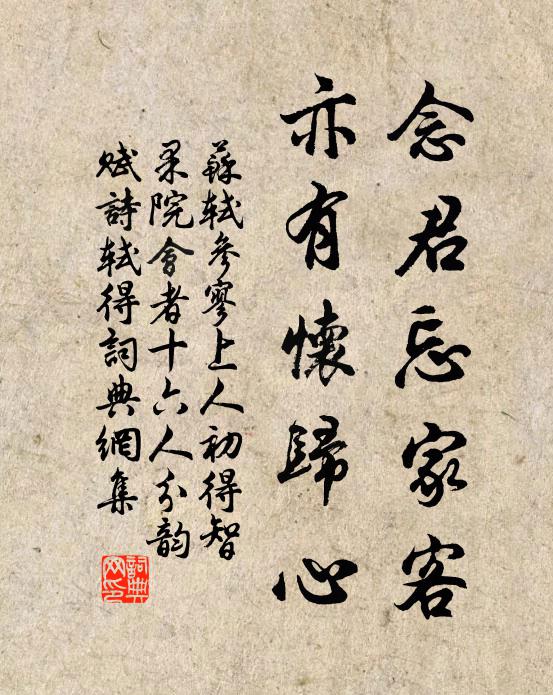 念君忘家客
亦有懷歸心
蘇軾參寥上人初得智
果院會者十六人分韵
賦詩軾得詞典網集
詞典
网印